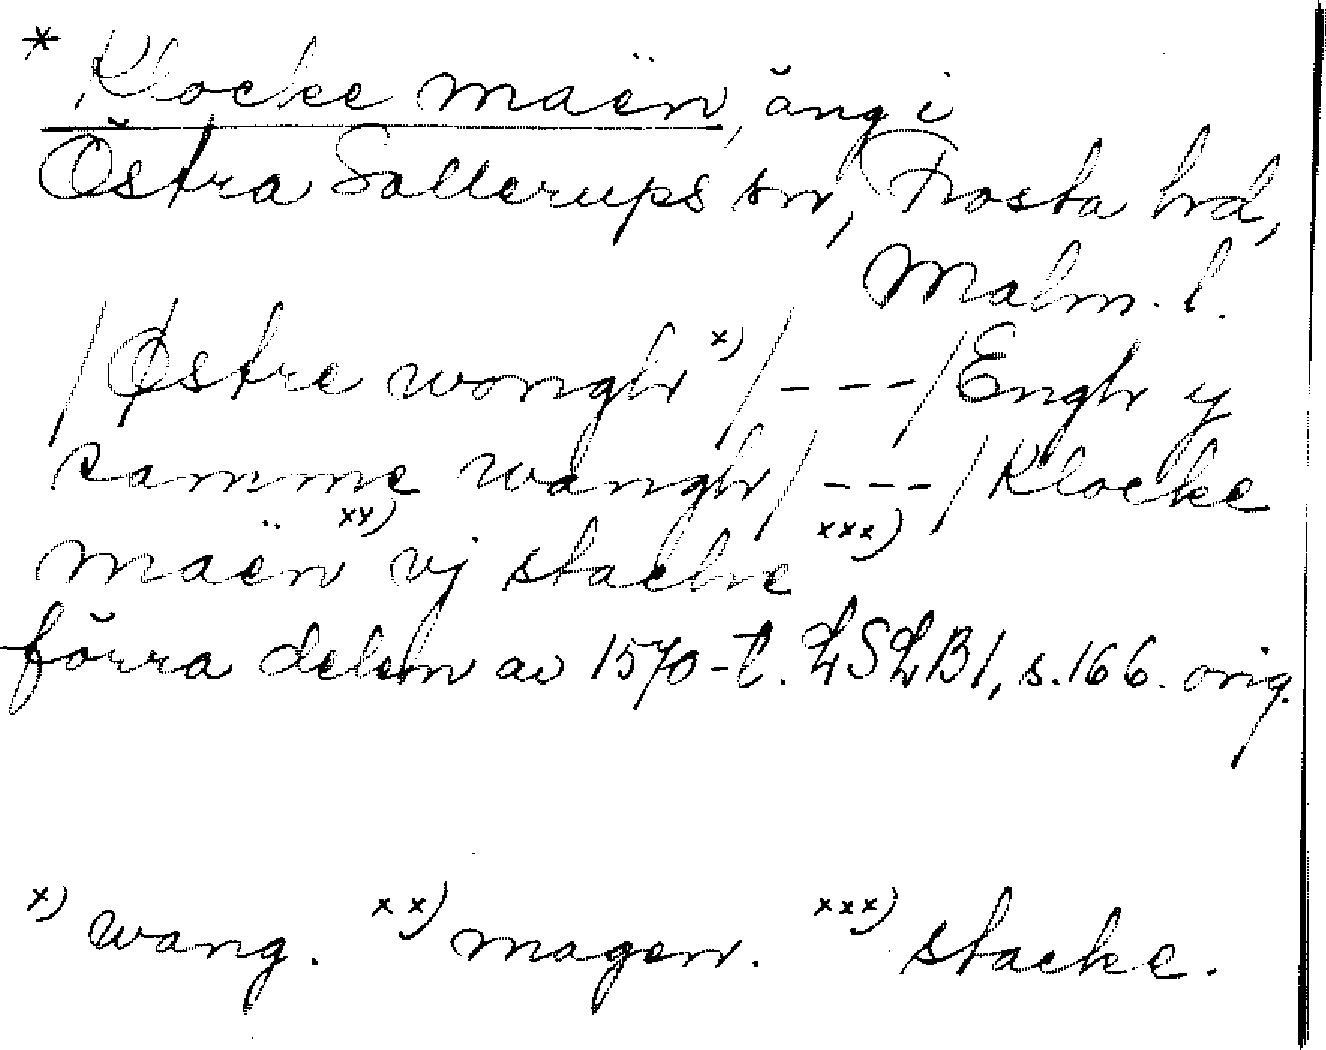 * Klocke maën, äng i
Östra Sallerups sn, Frosta hd,
Malm. l.
/Østre wongh x) / - - - / Engh y
samme wangh / - - - / Klocke
maën xx) vj stackne xxx)
förra delen av 1570-t. LSLB1, s. 166. orig.
x) wang. xx) magen. xxx) stacke.